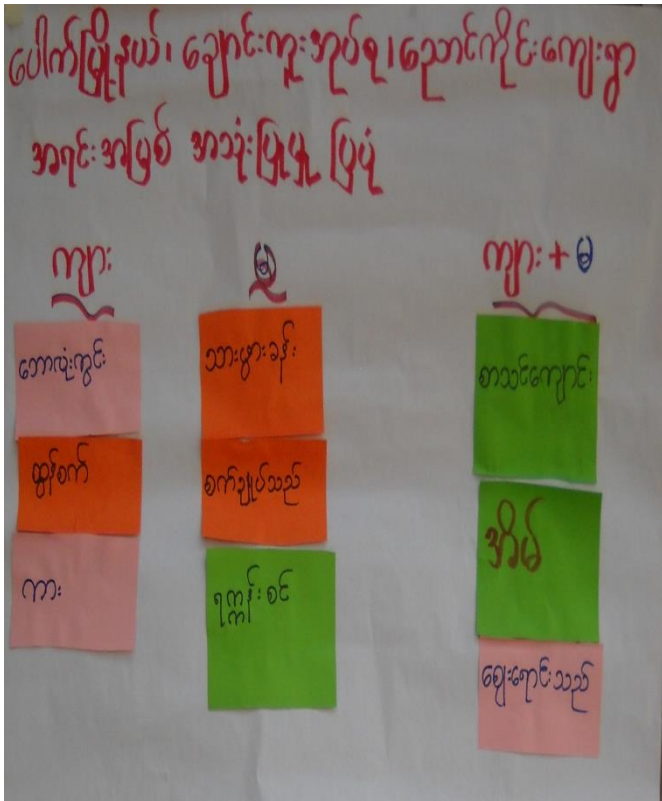 ပေါက်မြို့နယ်၊ ချောင်းကူးအုပ်စု၊ ညောင်ကိုင်းကျေးရွာ
အရင်းအမြစ် အသုံးပြုမှု ပြပုံ
ကျား
မ
ကျား + မ
ဘောလုံးကွင်း
ထွန်စက်
ကား
သားဖွားခန်း
စက်ချုပ်သည်
ရက္ကန်းစင်
စာသင်ကျောင်း
အိမ်
ဈေးရောင်းသည်